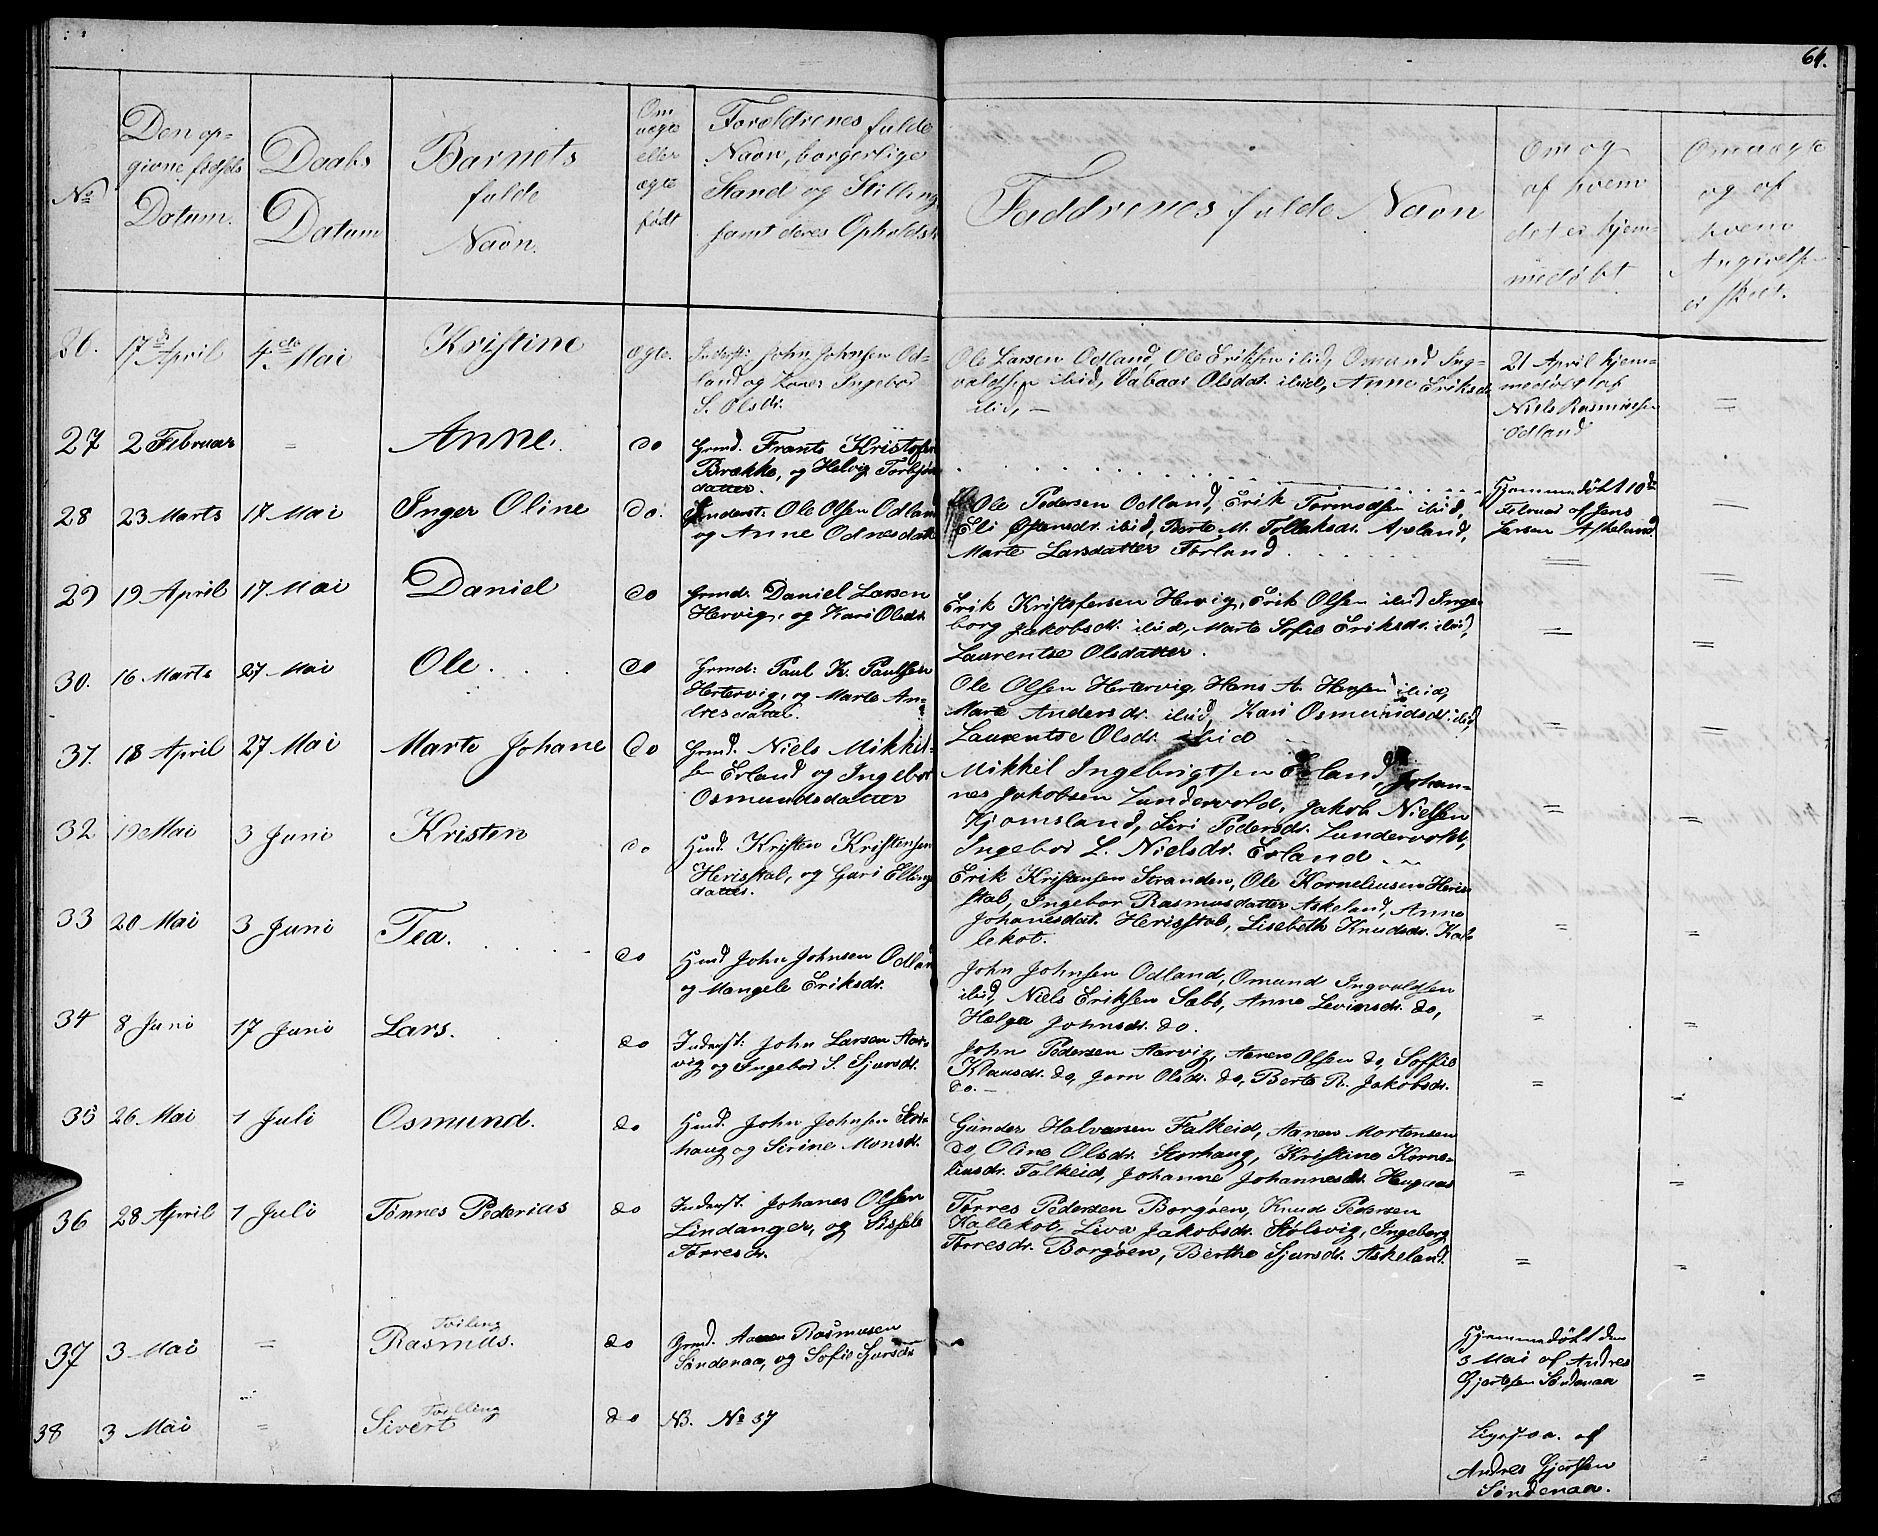 64.
No
Den op-
givne fødsels
Datum.
Daabs
Datum
Barnets
fulde
Navn.
Om
uægte
eller
ægte
født
Forældrenes fulde
Navn, borgerlige
Stand og Stilling
samt deres Opholdst
Faddrenes fulde Navn
Om og
af hvem
det er hjem-
medøbt
Om uægte
og af
hvem
Angivelse
er skeet.
26. 17de April 4de Mai Kristine ægte. Inderst: John Johnsen Od-
land og Kone Ingebor
S. Olsdr.
Ole Larsen Odland, Ole Eriksen ibid, Omund Ing-
valdsen ibid, Vabaar Olsdat. ibid, Anne Eriksdr.
ibid, —
21 April hjem-
medøbt af
Niels Rasmussen
Odland
=
27 2 Februar = Anne. do Grmd. Frants Kristofer
Brække, og Helvig Torbjørns
datter.
Hjemmedøbt 10de
Februar af Jens
Larsen Askeland
=
28 23 Marts 17 Mai Inger Oline do. Inderst: Ole Olsen Odland
og Anne Odnesdatte
Ole Pedersen Odland, Erik Tormodsen ibid,
Eli Østensdr. ibid, Berte M. Tollaksdr. Apeland,
Marte Larsdatter Førland
= =
29 19 April 17 Mai Daniel do Grmd. Daniel Larsen
Hervig, og Kari Olsdr.
Erik Kristofersen Hervig, Erik Olsen ibid Inge-
borg Jakobsdr. ibid, Marte Sofie Eriksdr. ibid,
Laurentse Olsdatter.
= =
30. 16 Marts 27 Mai Ole. do Grmd: Paul K. Paulsen
Hertervig, og Marte An-
dresdatter.
Ole Olsen Hertervig, Hans A. Hansen ibid,
Marte Andersdr. ibid, Kari Osmundsdr. ibid,
Laurentse Olsdr. ibid
= =
31. 18 April 27 Mai Marte Johane do Grmd. Niels Mikkel-
sen Erland og Ingebor
Osmundsdatter
Mikkel Ingebrigtsen Erland, Johan-
nes Jakobsen Lundervold, Jakob Nielsen
Kjomsland, Siri Pedersdr. Lundervold,
Ingebor L. Nielsdr. Erland
= =
32 19 Mai 3 Juni Kristen do Hmd. Kristen Kristensen
Herisstal, og Guri Ellings
datter.
Erik Kristiansen Stranden, Ole Korneliusen Heris-
stal, Ingebor Rasmusdatter Askeland, Anne
Johanesdat. Herisstal, Lisebeth Knudsdr. Kal-
lekot.
= =
33 20 Mai 3 Juni Tea. do Hmd John Johnsen Odland
og Mangele Eriksdr.
John Johnsen Odland, Omund Ingvaldsen
ibid, Niels Eriksen Sæbb, Anne Levinsdr. do,
Helga Johnsdr. do.
= =
34 8 Juni 17 Juni Lars. do Inderst: John Larsen Aar-
vig og Ingebor S. Sjursdr.
John Pedersen Aarvig, Aanen Olsen do, Soffie
Klausdr. do, Jorn Olsdr. do, Berte R. Jakobsdr.
do. —
= =
35 26 Mai 1 Juli Osmund. do Hmd. John Johnsen Stor-
haug og Serine Monsdr.
Gunder Halvorsen Falkeid, Aanen Mortensen
do, Oline Olsdr. Storhaug, Kristine Korne-
liusdr. Falkeid, Johanne Johannesdr. Heggaas
= =
36 28 April 1 Juli Tønnes Pederias do Inderst. Johanes Olsen
Lindanger, og Sissele
Tørresdr.
Tørres Pedersen Borgøen, Knud Pedersen
Kallekot, Liva Jakobsdr. Stølsvig, Ingeborg
Tørresdr. Borgøen, Berthe Sjursdr. Askeland.
= =
37 3 Mai = Tvilling
Rasmus. do Grmd. Aanen Rasmusen
Søndenaa, og Sofie Gjursdr
Hjemmedøbt den
3 Mai af Andres
Gjertsen Søndenaa
=
38 3 Mai = Tvilling
Sivert do NB. No 37
Ligesaa af
Andres Gjertsen
Søndenaa.
=